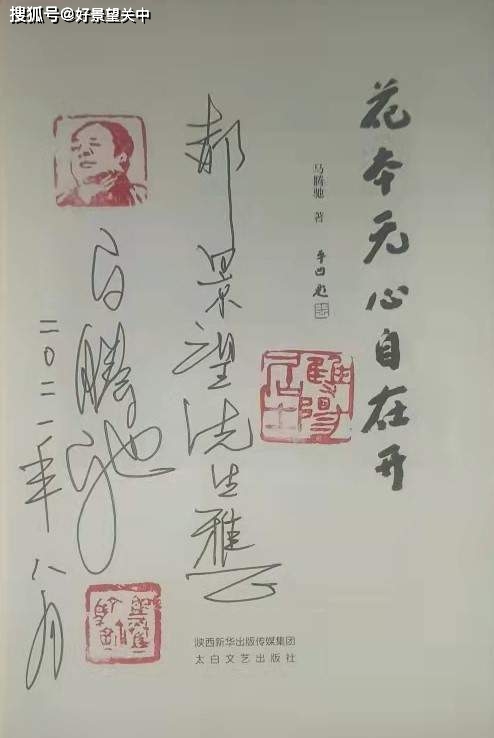 搜狐号@好景望关中
花本无心自在开
马腾驰 著
平凹题
雙陽居士
郝景望先生雅正
马腾驰
二〇二一年八月
陕西新华出版传媒集团
太白文艺出版社